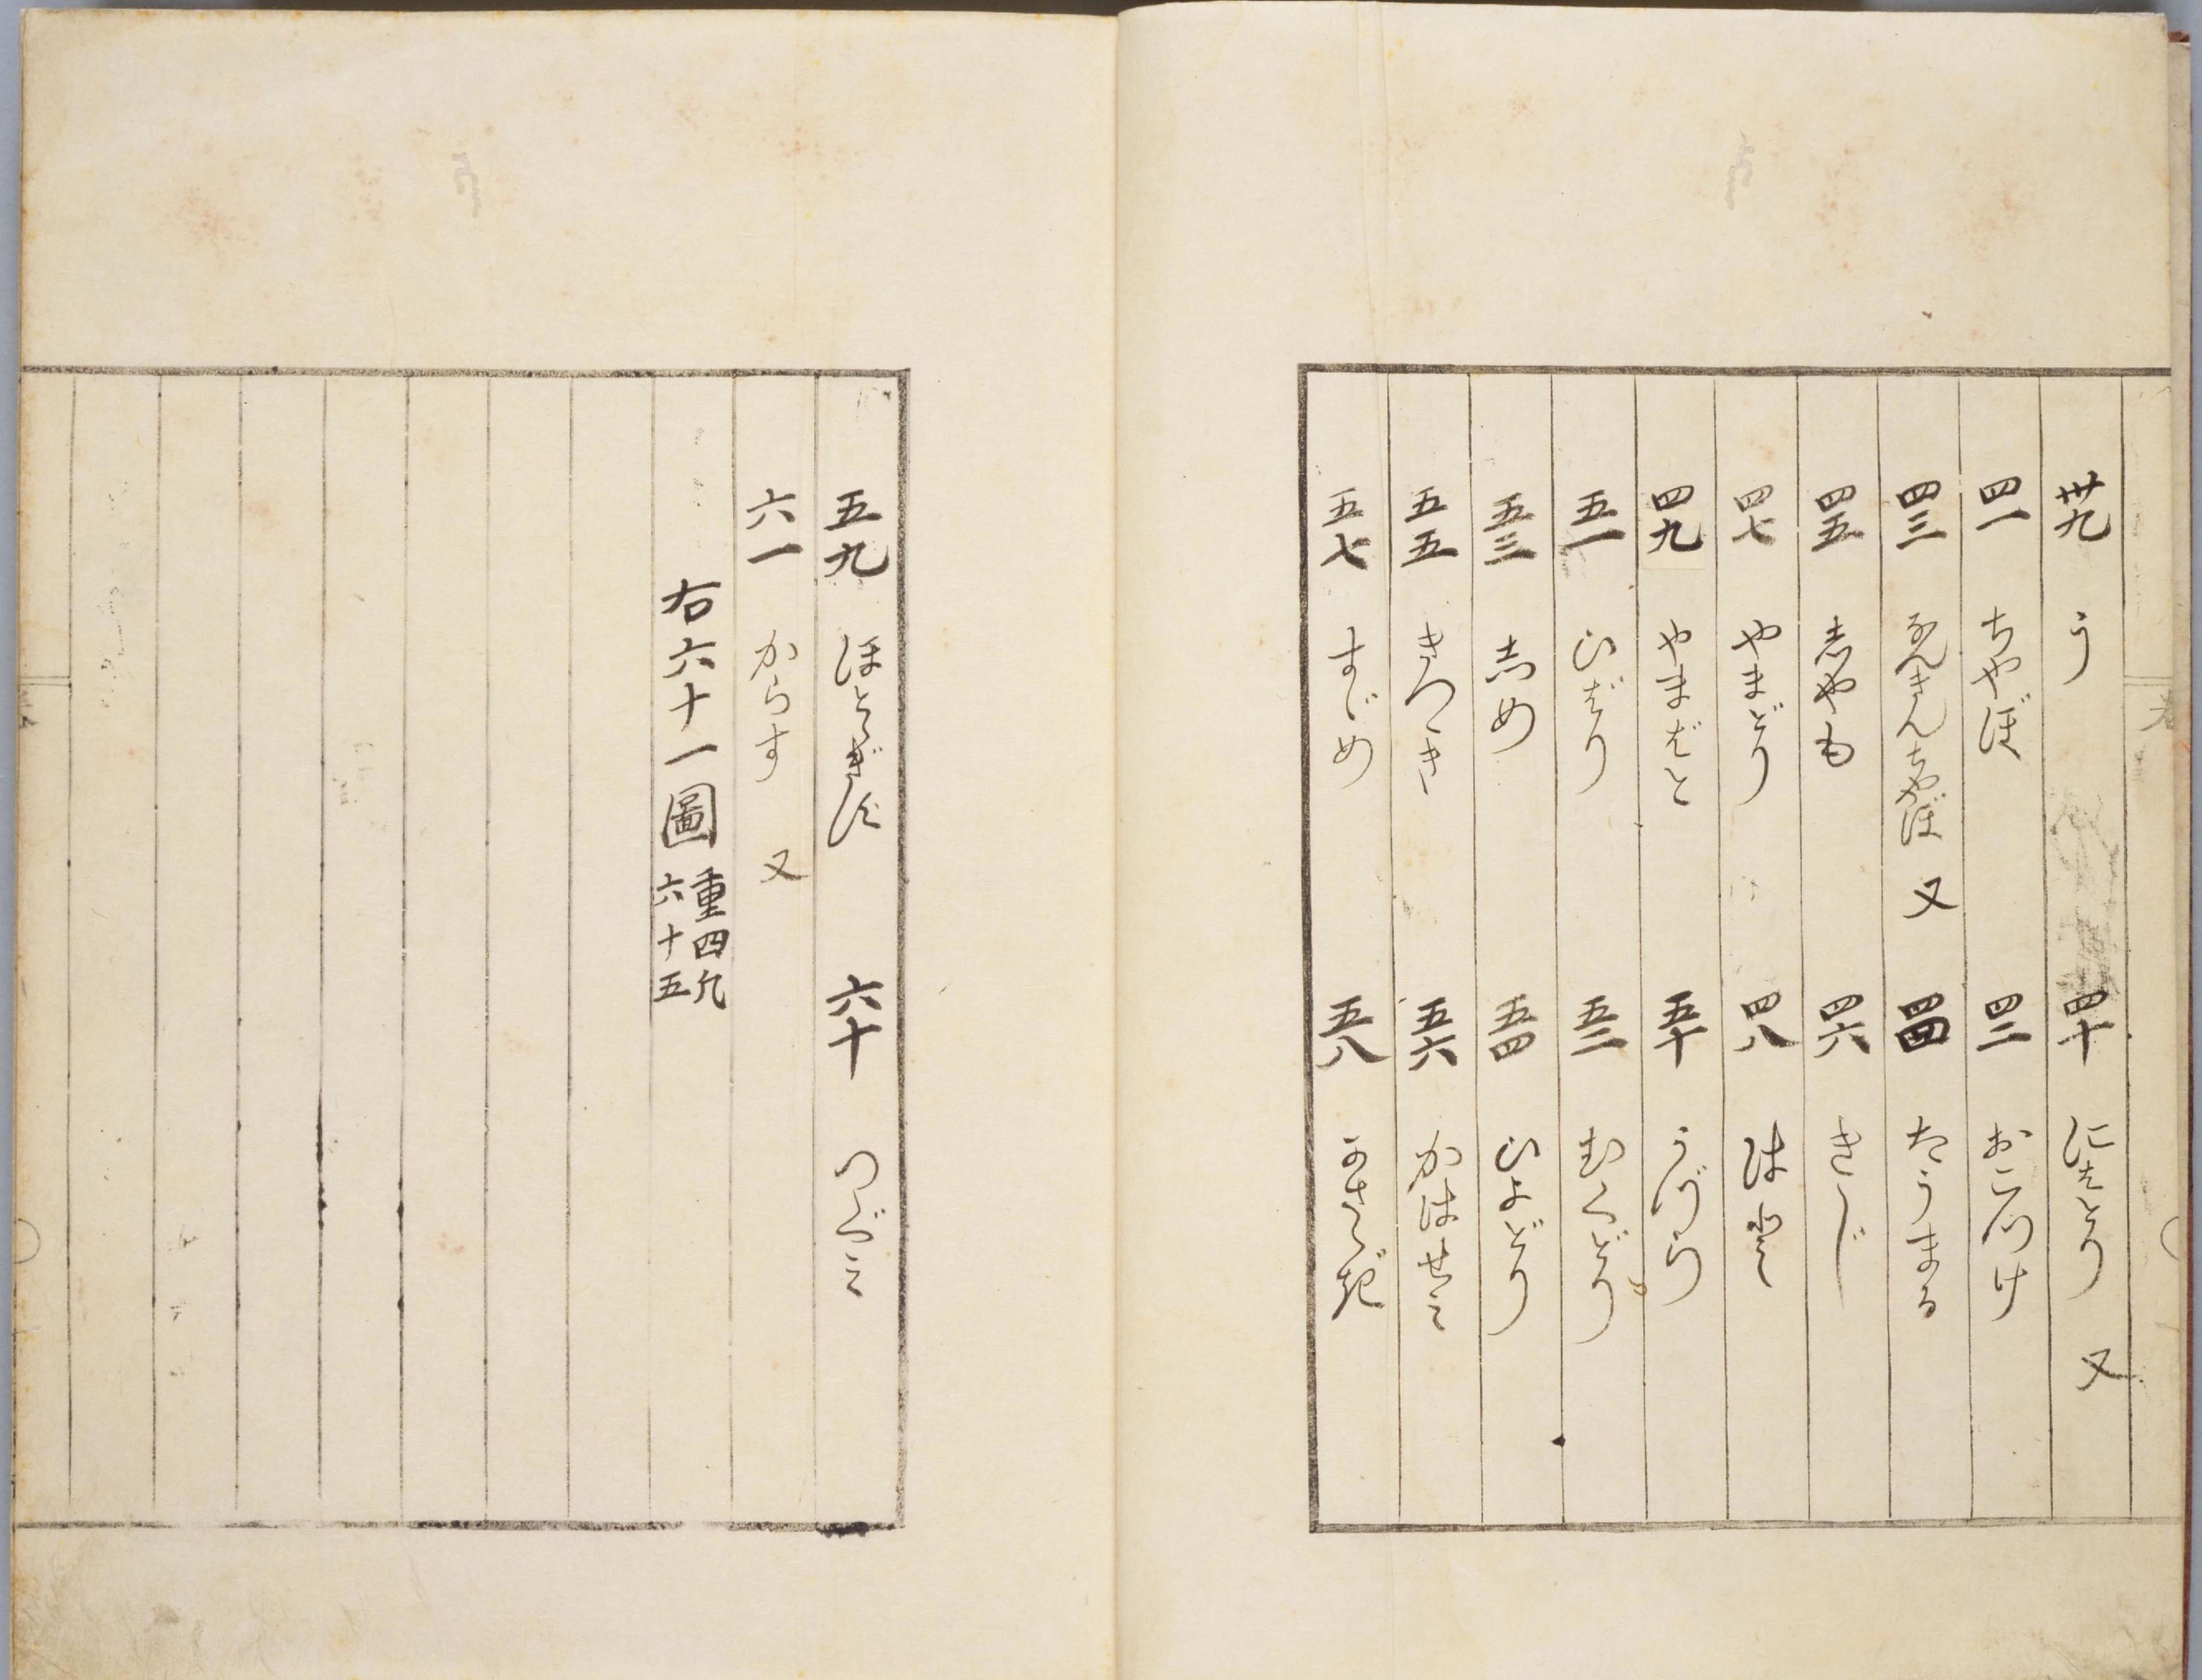 卅九 う 四十 にはとり 又
四一 ちやぼ 四二 おこつけ
四三 なんきんちやぼ 又 四四 たうまる
四五 しやも 四六 きじ
四七 やまどり 四八 はと
四九 やまばと 五十 うづら
五一 ひばり 五二 むくどり
五三 しめ 五四 ひよどり
五五 きつゝき 五六 かはせミ
五七 すゞめ 五八 かさゝぎ
五九 ほとゝぎす 六十 つぐミ
六一 からす 又
右六十一圖 重四凡
六十五